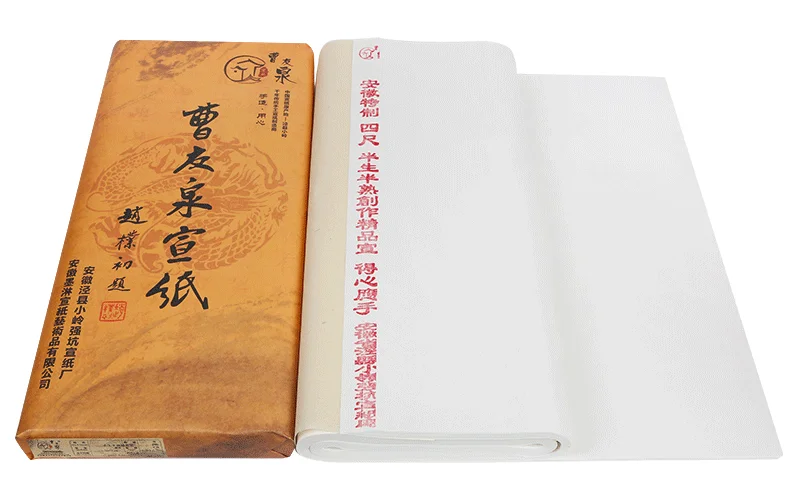 曹友泉
手造·用心
曹友泉宣紙
趙樸初題
安徽泾县小岭强坑宣纸厂
安徽墨淋宣紙藝術品有限公司
安徽特制 四尺 半生半熟創作精品宣 得心應手